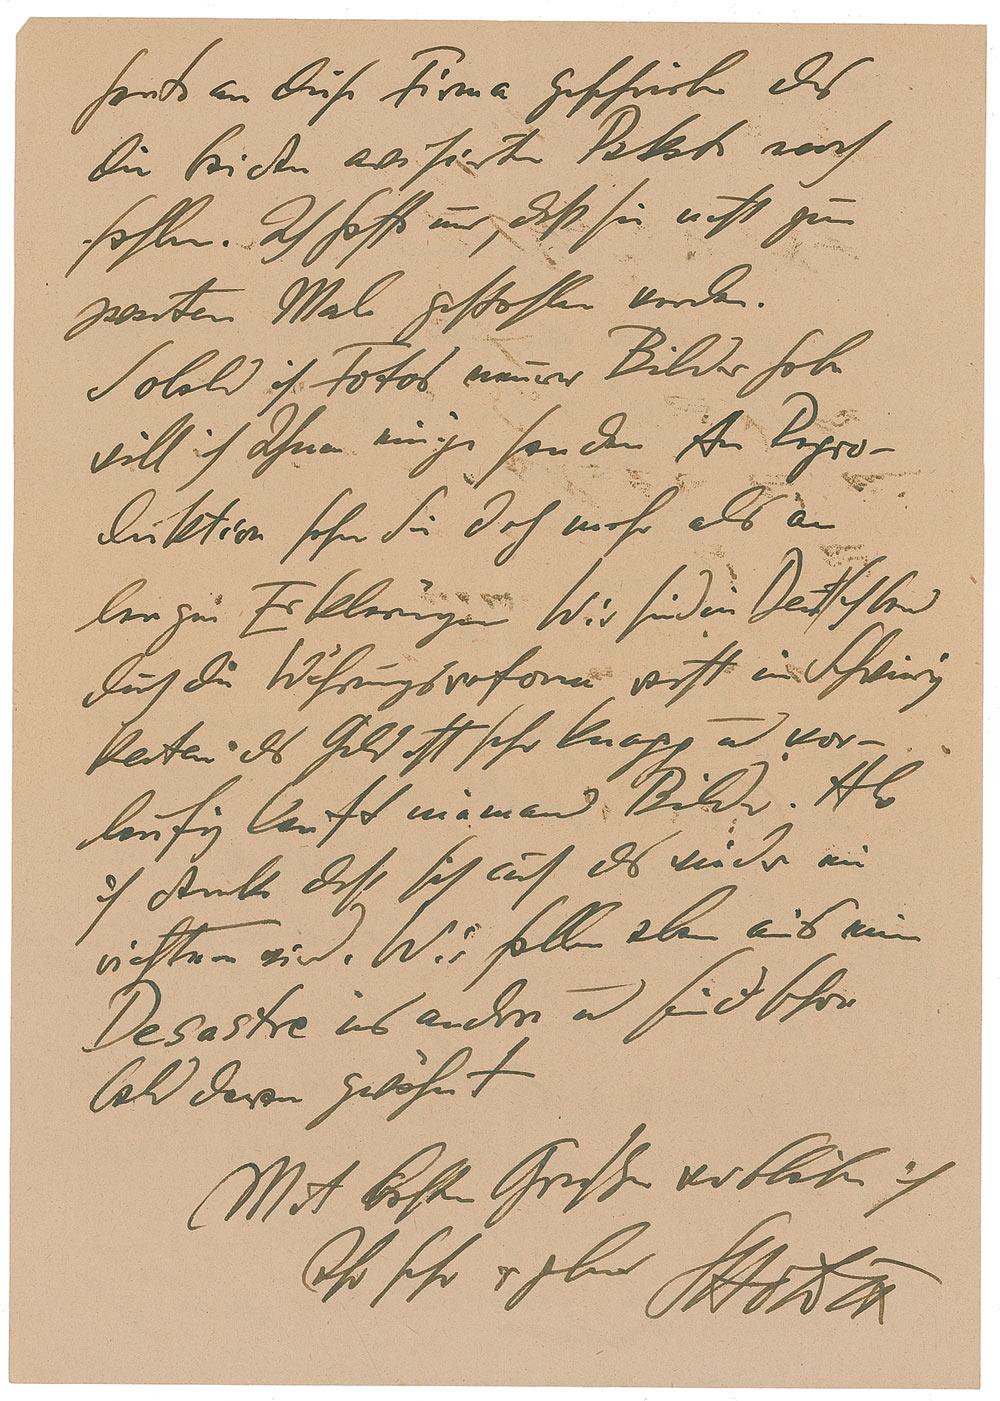 heute an diese Firma geschrieben das
die beiden avisierten Pakete noch
fehlen. Ich hoffe nur, dass sie nicht zum
zweiten Male gestohlen werden.
Sobald ich Fotos neuerer Bilder habe
will ich Ihnen einige senden An Repro-
duktion sehen Sie doch mehr als an
langen Erklärungen Wir sind in Deutschland
durch die Währungsreform recht in Schwierig
keiten das Geld ist sehr knapp u vor-
läufig kauft niemand Bilder. Aber
ich denke dass sich auch das wieder ein
richten wird. Wir fallen eben aus einem
Desastre ins andere u sind schon
bald daran gewöhnt
Mit besten Grüßen verbleibe ich
Ihr sehr ergebener